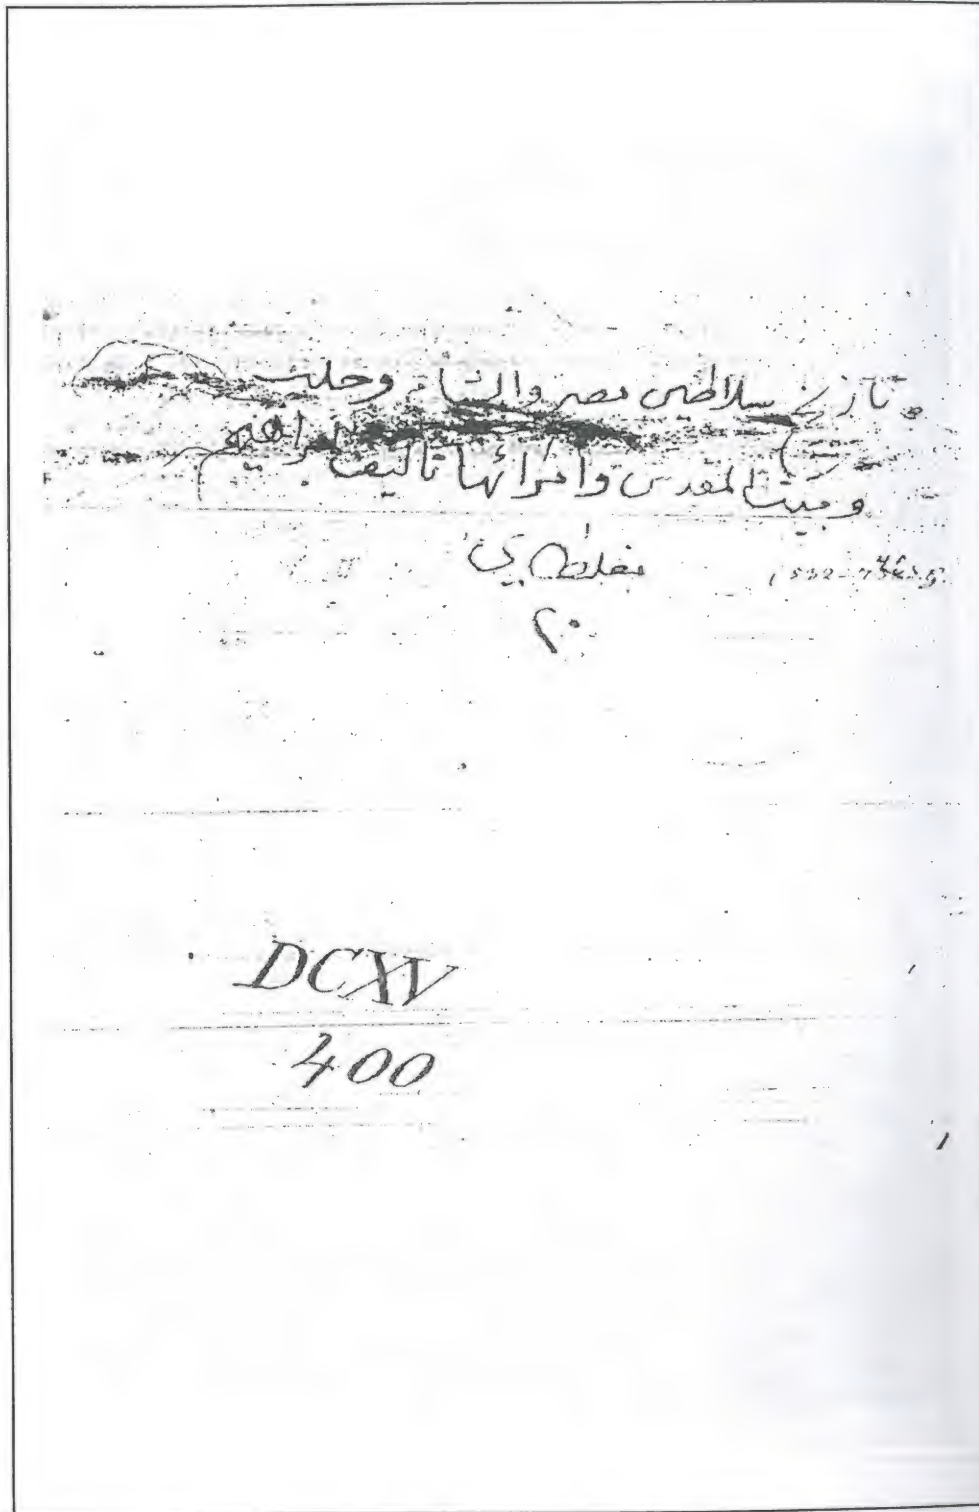 تاريخ سلاطين مصر والشام وحلب
وبيت المقدس وامرائها تاليف ابراهيم
مغلطاي
٢٠
DCXV
400